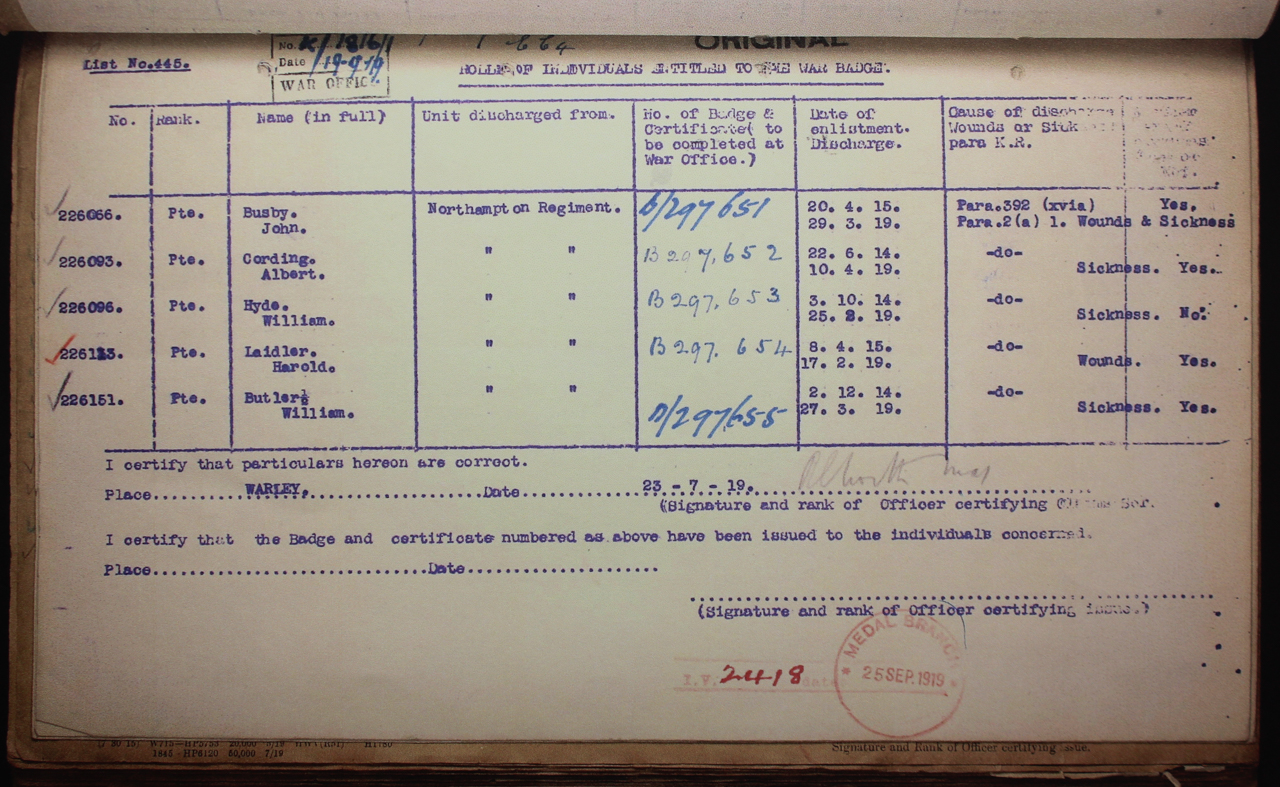 ORIGINAL
No. K/1816/1
List No.445.
Date 19-9-19
WAR OFFICE
ROLLS OF INDIVIDUALS ENTITLED TO THE WAR BADGE.
No. Rank. Name (in full) Unit discharged from. No. of Badge & Certificate( to be completed at War Office.) Date of enlistment. Discharge. Cause of discharge Wounds or Sick para K.R.
226066. Pte. Busby. Northampton Regiment. B/297651 20. 4. 15. Para.392 (xvia) Yes.
John. 29. 3. 19. Para.2(a) 1. Wounds & Sickness
226093. Pte. Cording. " " B297,652 22. 6. 14. -do-
Albert. 10. 4. 19. Sickness. Yes.
226096. Pte. Hyde. " " B297.653 3. 10. 14. -do-
William. 25. 2. 19. Sickness. No.
Pte. Laidler. " " B297.654 8. 4. 15. -do-
Harold. 17. 2. 19. Wounds. Yes.
226151. Pte. Butler " " B/297655 2. 12. 14. -do-
William. 27. 3. 19. Sickness. Yes.
I certify that particulars hereon are correct.
Place..........WARLEY...................Date...............23 - 7 - 19.
(Signature and rank of Officer certifying
I certify that the Badge and certificate numbered as above have been issued to the individuals concerned.
Place..............................Date.....................
(Signature and rank of Officer certifying issue.)
I.V. 2418
* MEDAL BRANCH *
25 SEP. 1919
1845 - HP6120 50,000 7/19
Signature and Rank of Officer certifying issue.